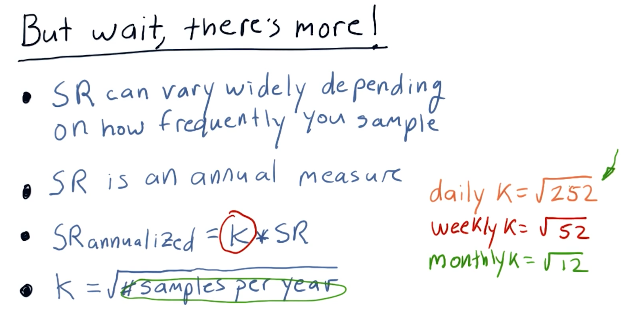 But wait, there's more!
• SR can vary widely depending
on how frequently you sample
• SR is an annual measure
• SRannualized = K * SR
• K = √#samples per year
daily K = √252
weekly K = √52
monthly K = √12